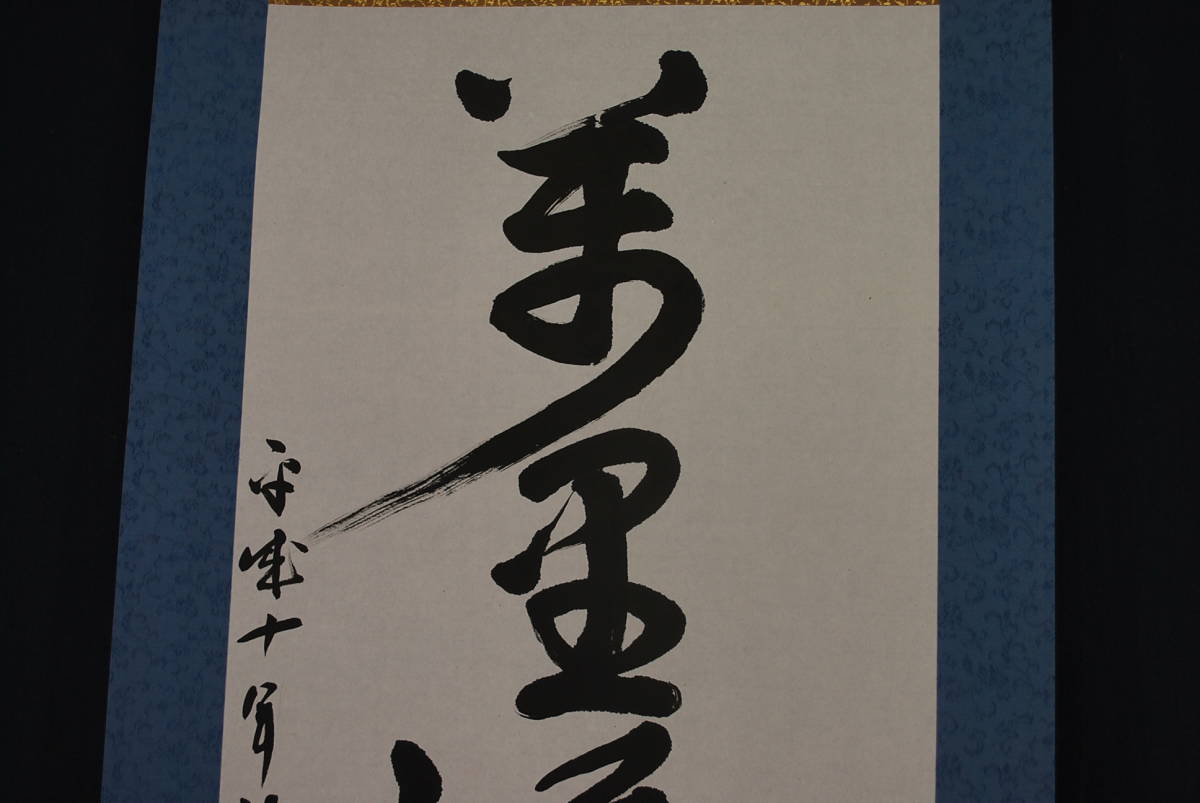 萬里
平成十年